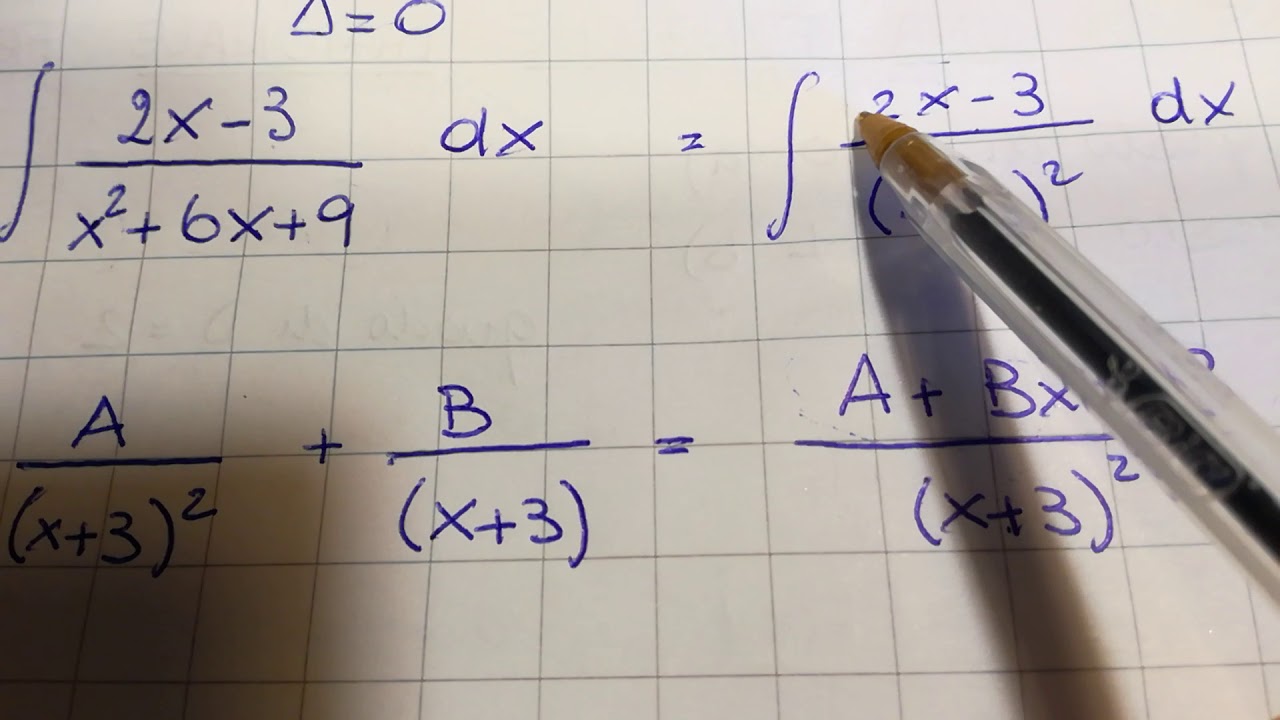 Δ = 0
∫ (2x - 3)/(x² + 6x + 9) dx = ∫ (2x - 3)/( )² dx
A/(x+3)² + B/(x+3) = (A + Bx)/(x+3)²